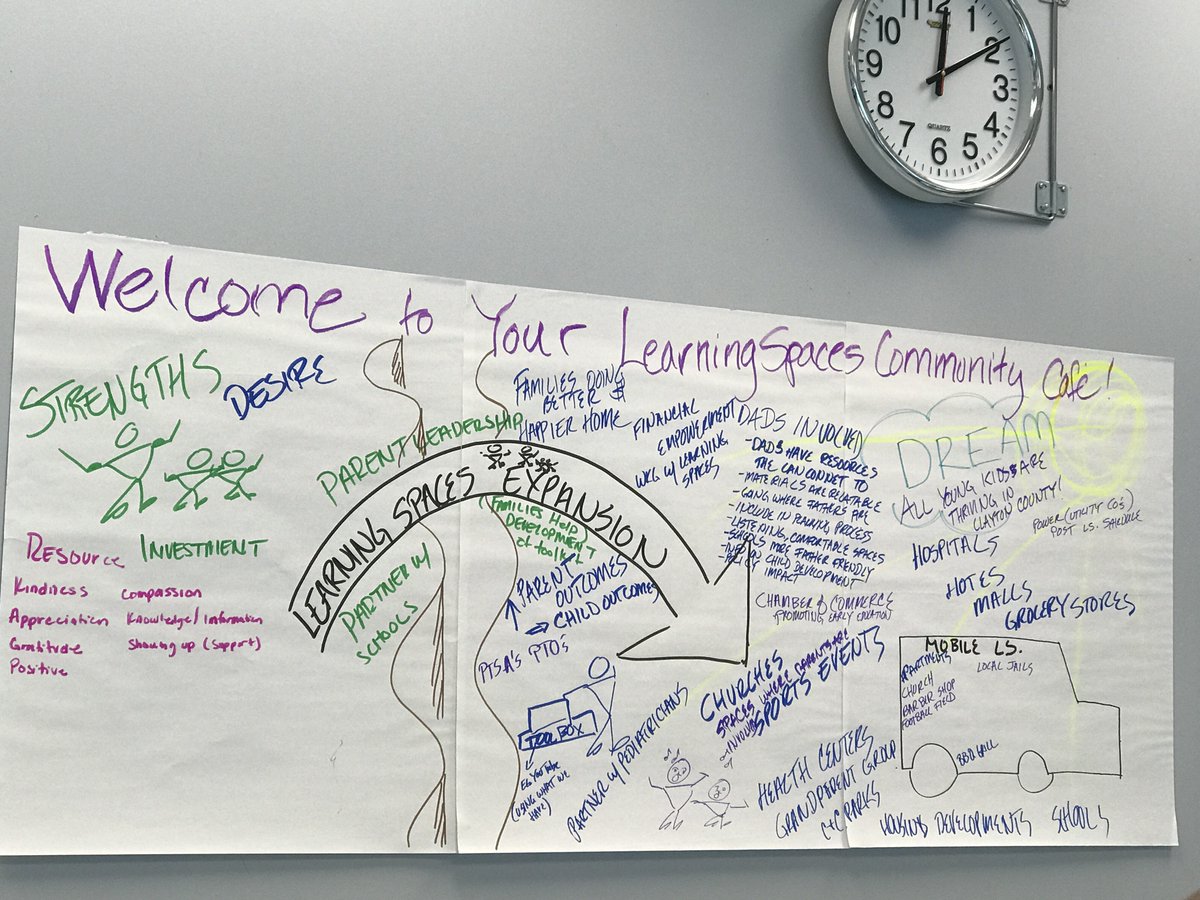 11 12 1
10 2
9 3
8 4
7 6 5
QUARTZ
Welcome to Your Learning Spaces Community Café!
STRENGTHS
DESIRE
RESOURCE
INVESTMENT
Kindness compassion
Appreciation Knowledge/Information
Gratitude Showing up (support)
Positive
PARENT LEADERSHIP
LEARNING SPACES EXPANSION
PARTNER W/
SCHOOLS
FAMILIES DOING
BETTER $
HAPPIER HOME
(FAMILIES HELP)
DEVELOPMENT
of toolkit
PARENT
OUTCOMES
CHILD OUTCOMES
PTSA's PTO's
TOOLBOX
EG YOUTUBE
(USING WHAT WE
HAVE)
PARTNER W/ PEDIATRICIANS
FINANCIAL
EMPOWERMENT
WKG W/ LEARNING
SPACES
DADS INVOLVED
- DADS HAVE RESOURCES
THE CAN CONNET TO
- MATERIALS ARE RELATABLE
- GOING WHERE FATHERS ARE
- INCLUDE IN PLANNING PROCESS
- LISTENING, COMFORTABLE SPACES
- SCHOOLS MORE FATHER FRIENDLY
CHILD DEVELOPMENT
IMPACT
CHAMBER of COMMERCE
PROMOTING EARLY EDUCATION
CHURCHES
SPACES WHERE PARENTS ARE
INVOLVED
SPORTS EVENTS
HEALTH CENTERS
GRANDPARENT GROUP
PARKS
DREAM
ALL YOUNG KIDS ARE
THRIVING IN
CLAYTON COUNTY!
POWER (UTILITY CO'S)
POST LS. SCHEDULE
HOSPITALS
HOTES
MALLS
GROCERY STORES
MOBILE LS.
APARTMENTS
LOCAL JAILS
CHURCH
BARBER SHOP
FOOTBALL FIELD
HOUSING DEVELOPMENTS SCHOOLS